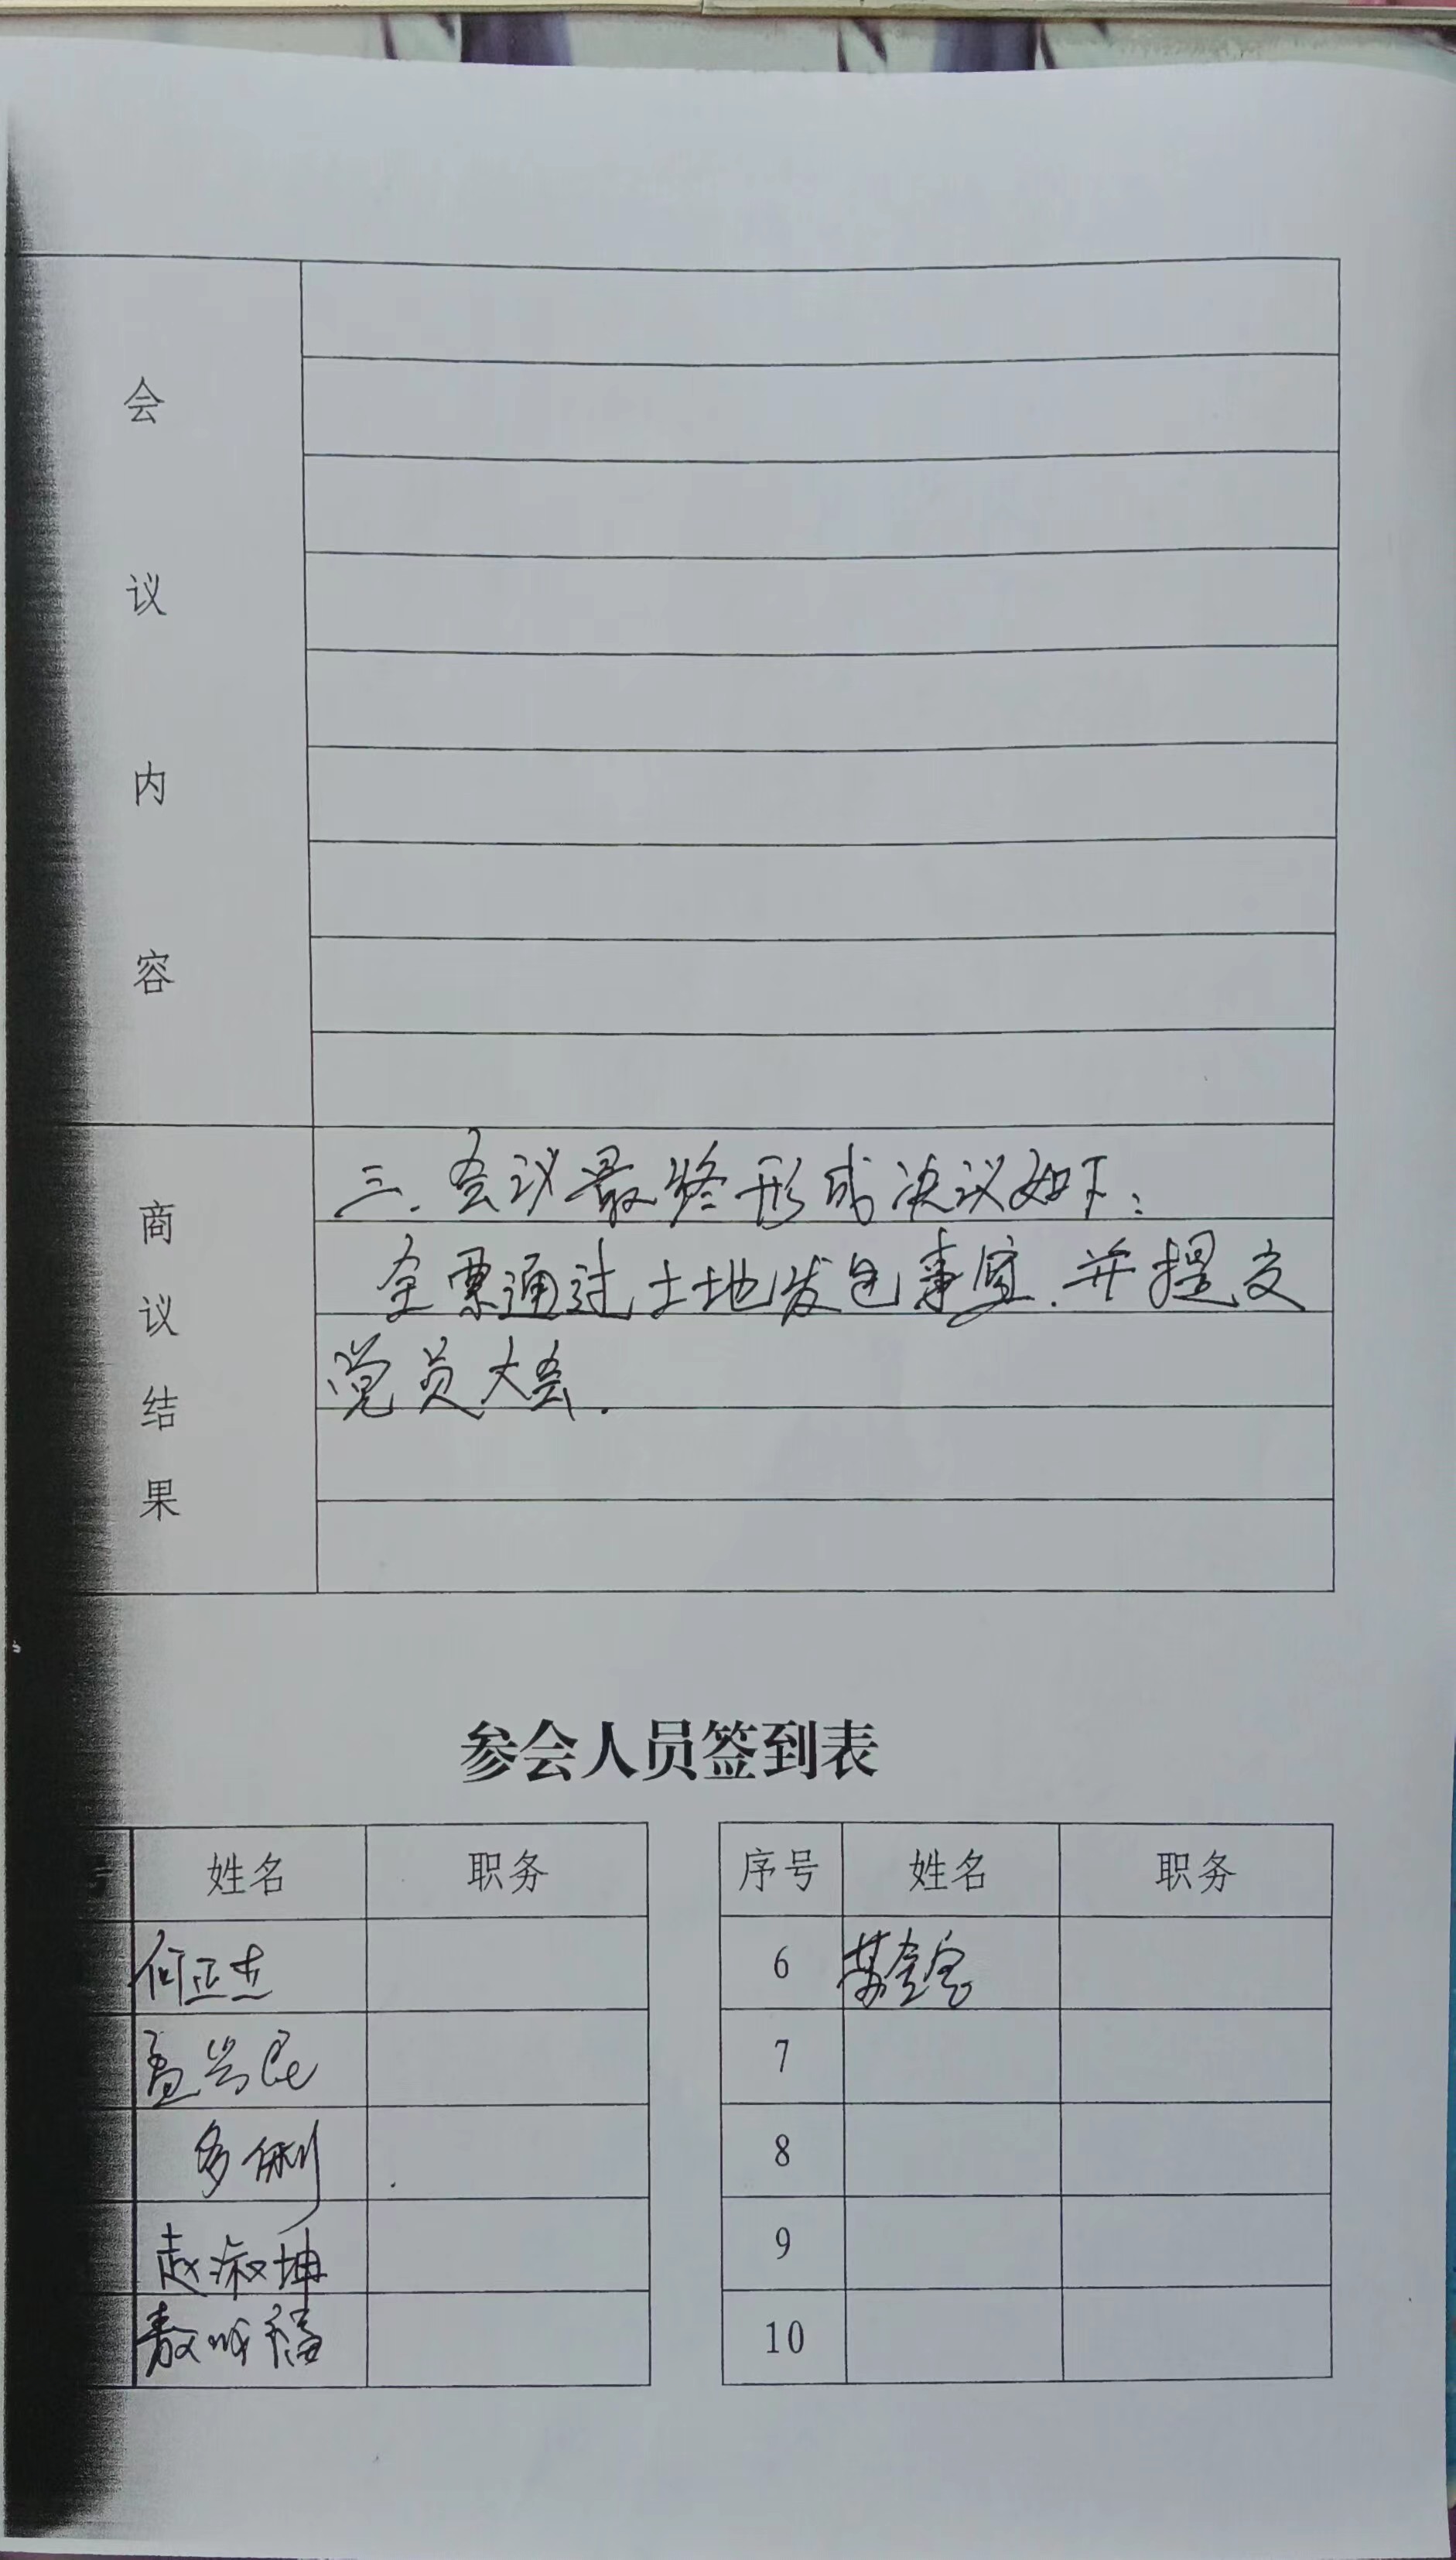 会
议
内
容
商
议
结
果
三.会议最终形成决议如下:
全票通过土地发包事宜.并提交
党员大会.
参会人员签到表
号 姓名 职务
何正杰
孟兴民
多俐
赵淑坤
敖成福
序号 姓名 职务
6
7
8
9
10